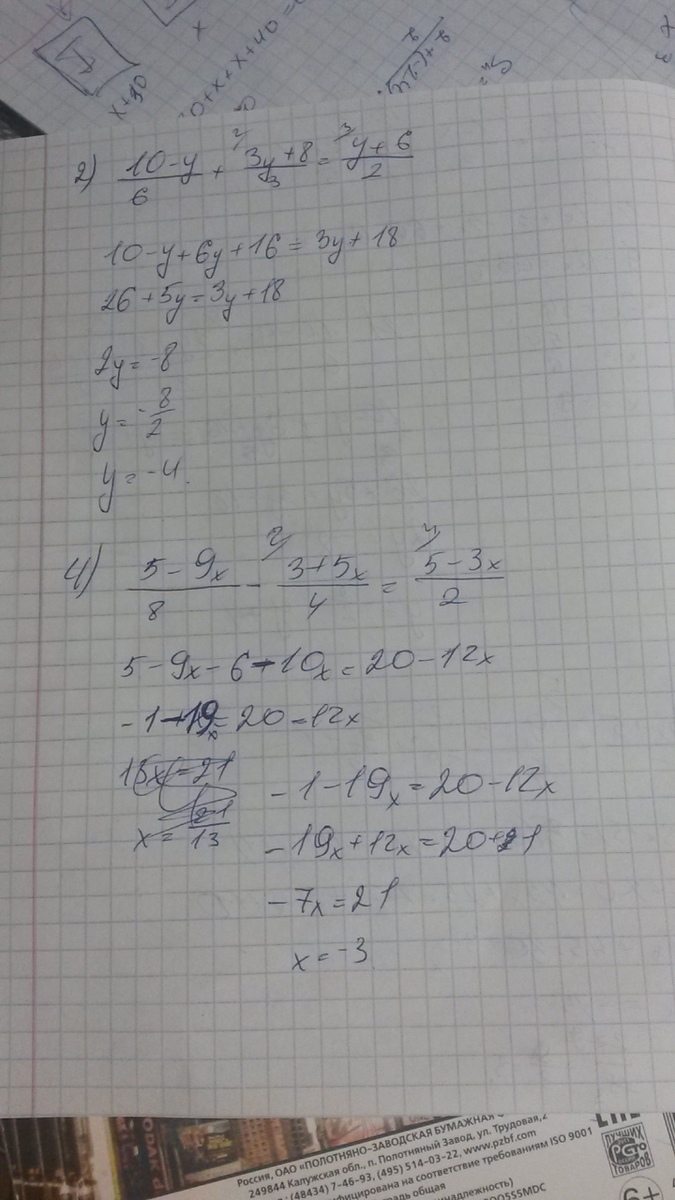 I
x+90
0+x+x+40=
2) (10-y)/6 + ²⁄(3y+8)/3 = ³⁄(y+6)/2
10-y+6y+16=3y+18
26+5y=3y+18
2y=-8
y=-8/2
y=-4.
4) (5-9x)/8 - ²⁄(3+5x)/4 = ⁴⁄(5-3x)/2
5-9x-6-10x=20-12x
-1-19x=20-12x
13x=21
x=21/13
-1-19x=20-12x
-19x+12x=20+1
-7x=21
x=-3
Россия, ОАО «ПОЛОТНЯНО-ЗАВОДСКАЯ БУМАЖНАЯ
249844 Калужская обл., п. Полотняный Завод, ул. Трудовая,2
(48434) 7-46-93, (495) 514-03-22, www.pzbf.com
ифицирована на соответствие требованиям ISO 9001
радь общая
ЛУЧШИХ
ТОВАРОВ
6+